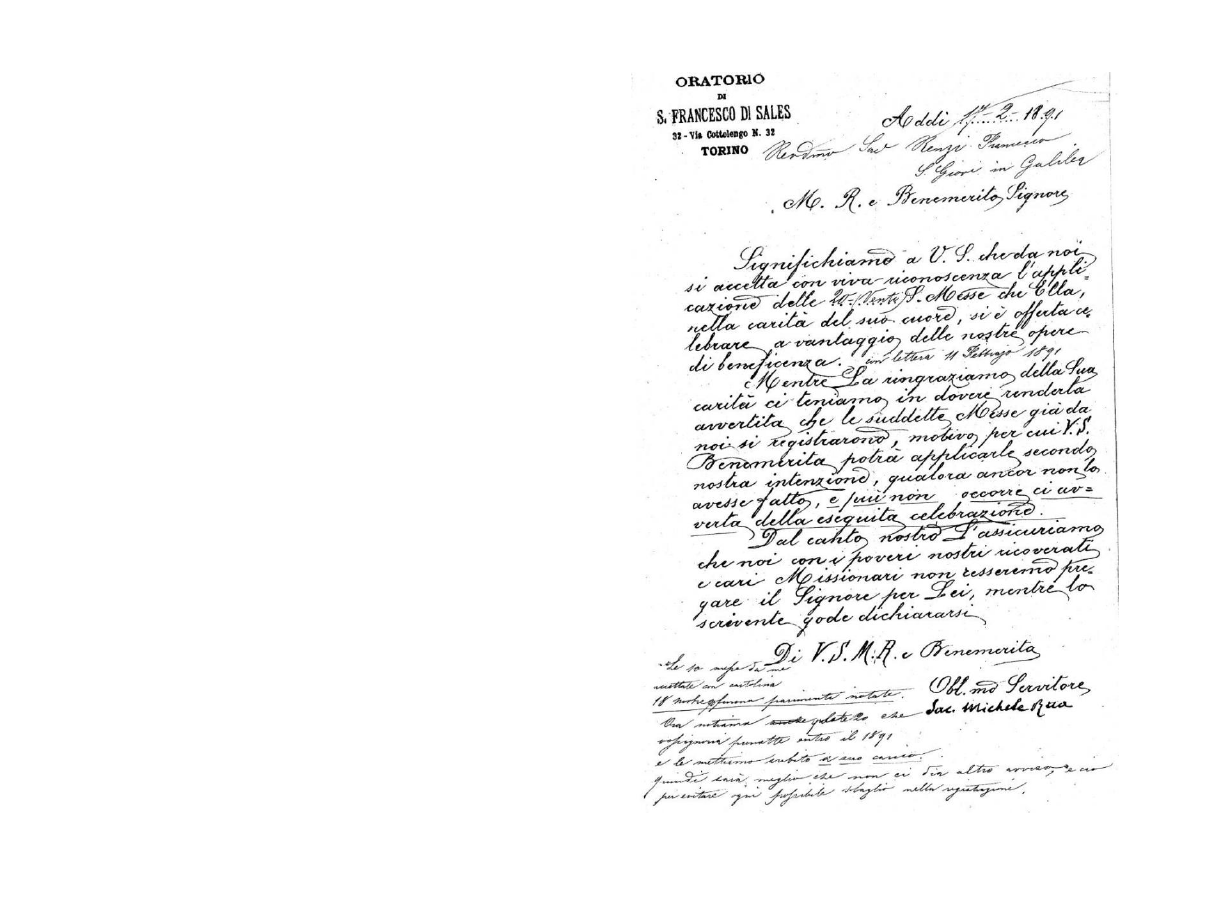 ORATORIO
DI
S. FRANCESCO DI SALES
32 - Via Cottolengo N. 32
TORINO
Addì 17-2-1891
Rendmo Sac Renzi Francesco
S. Giov. in Galilea
M. R. e Benemerito Signore
Significhiamo a V. S. che da noi
si accetta con viva riconoscenza l'appli=
cazione delle 20-(Venti) S. Messe che Ella,
nella carità del suo cuore, si è offerta ce,
lebrare a vantaggio delle nostre opere
di beneficenza. con lettera 11 Febbrajo 1891
Mentre La ringraziamo della Sua
carità ci teniamo in dovere renderla
avvertita che le suddette Messe già da
noi si registrarono, motivo per cui V. S.
Benemerita potrà applicarle secondo
nostra intenzione, qualora ancor non lo
avesse fatto, e più non occorre ci av=
verta della eseguita celebrazione.
Dal canto nostro L'assicuriamo
che noi con i poveri nostri ricoverati
e cari Missionari non cesseremo pre=
gare il Signore per Lei, mentre lo
scrivente gode dichiararsi
Di V. S. M. R. e Benemerita
Obl. mo Servitore
Sac. Michele Rua
Le 10 messe da me
accettate con cartolina
18 furono parimente notate.
Ora notiamo che
vossignoria promette entro il 1891
e le mettiamo subito a suo carico.
quindi sarà meglio che non ci dia altro avviso, e ciò
per evitare ogni possibile sbaglio nella registrazione.